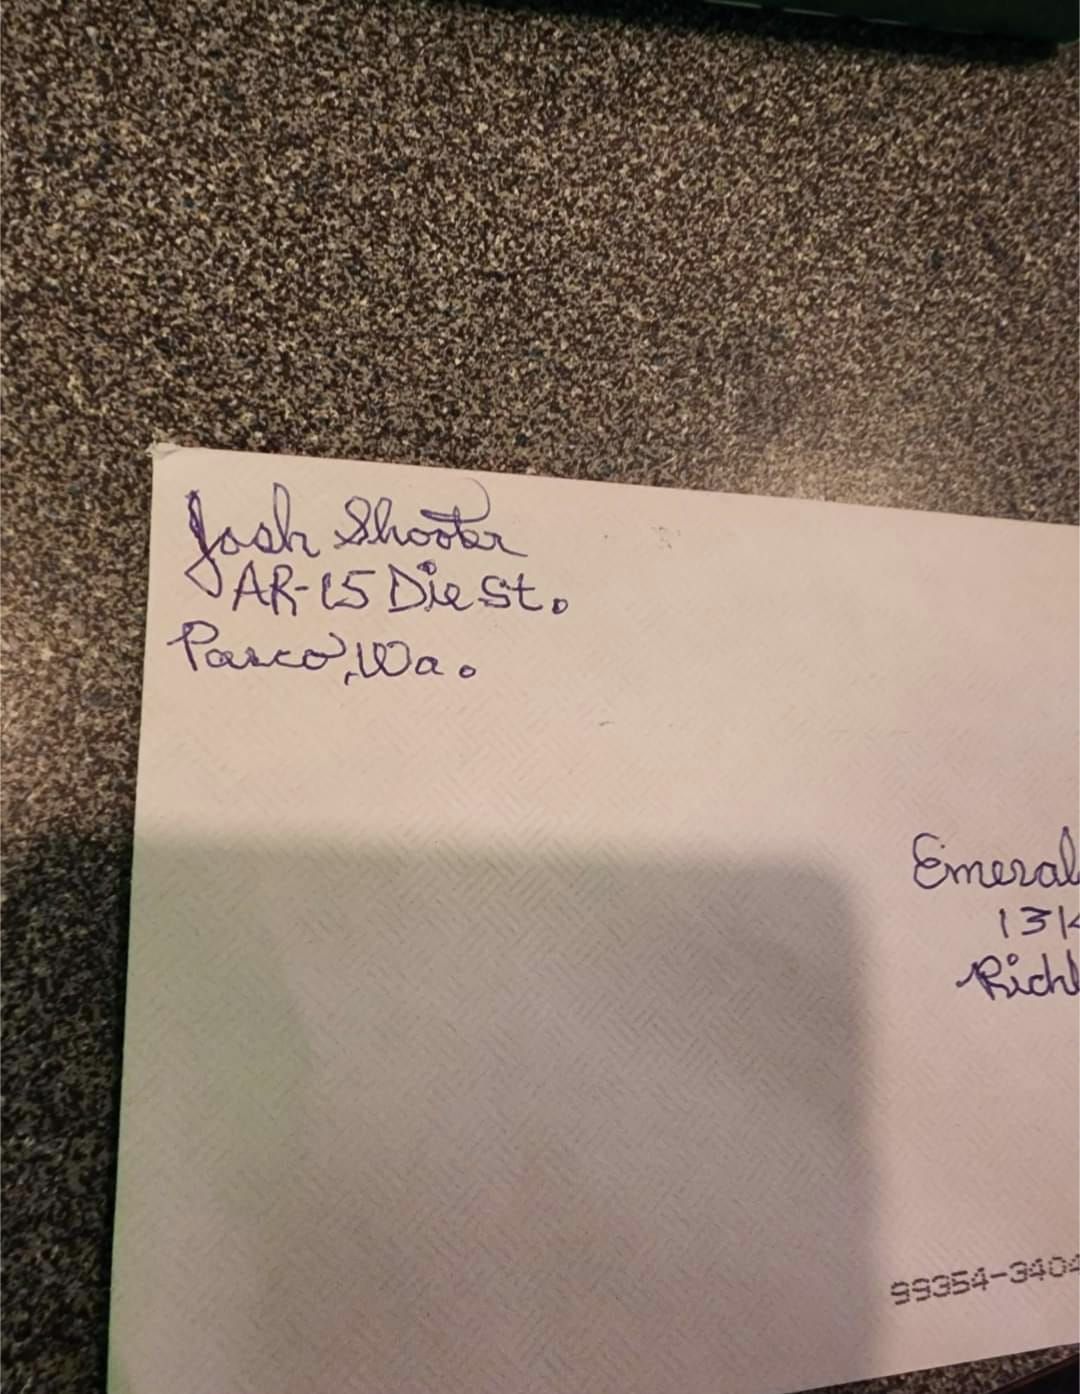 Josh Shooter
AR-15 Die St.
Pasco, Wa.
Emeral
131
Richl
99354-3404